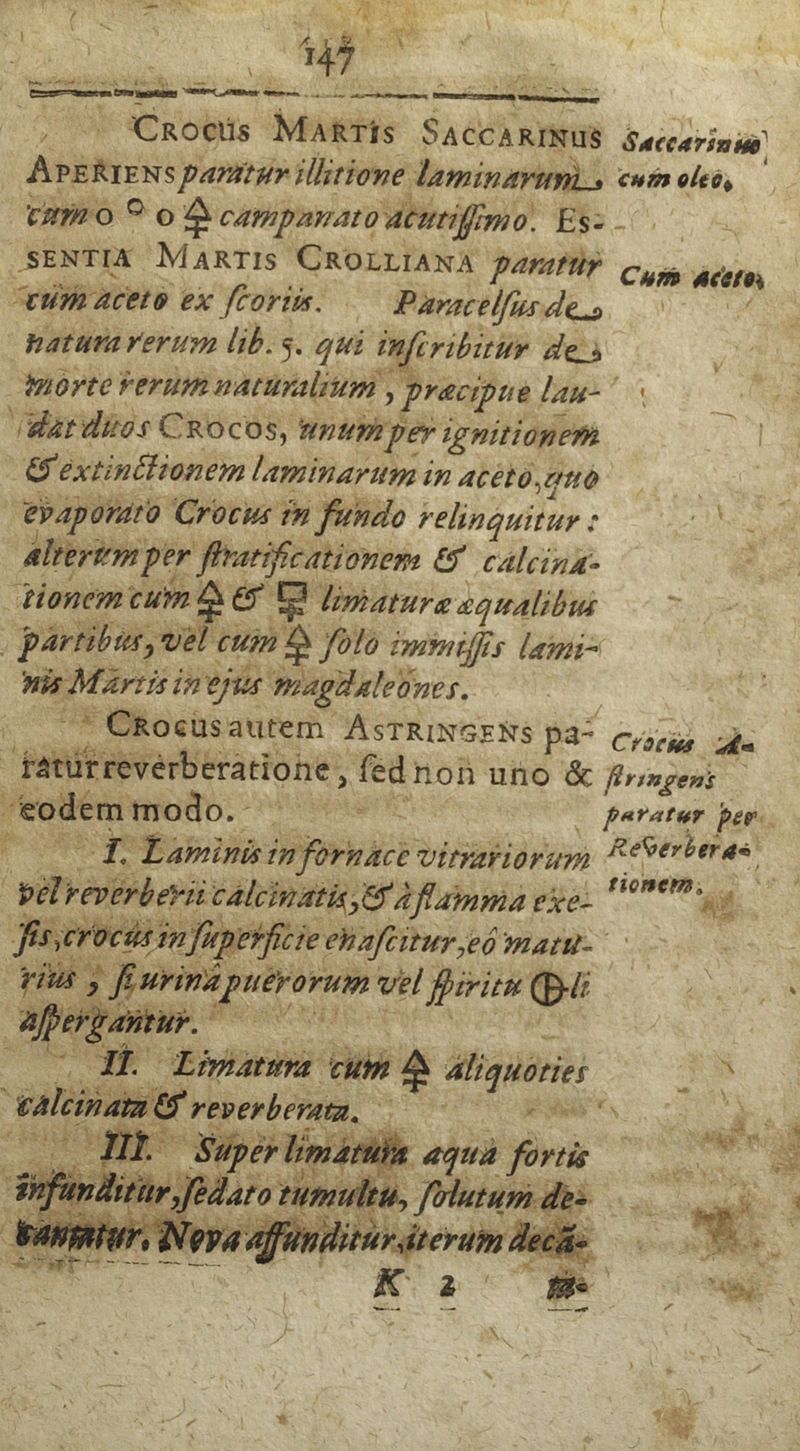 147
CROCUS MARTIS SACCARINUS
APERIENS paratur illitione laminarum
cum o°o 🜍 campanato acutiſſimo. Es-
SENTIA MARTIS CROLLIANA paratur
cùm aceto ex ſcoriis. Paracelſus de
natura rerum lib. 5. qui inſcribitur de
morte rerum naturalium, præcipue lau-
dat duos CROCOS, unum per ignitionem
& extinctionem laminarum in aceto, quo
evaporato Crocus in fundo relinquitur:
alterum per ſtratificationem & calcina-
tionem cum 🜍 & 🜿 limaturæ æqualibus
partibus, vel cum 🜍 ſolo immiſſis lami-
nis Martis in ejus magdaleones.
CROCUS autem ASTRINGENS pa-
ratur reverberatione, ſed non uno &
eodem modo.
I. Laminis in fornace vitrariorum
vel reverberii calcinatis, & à flamma exe-
ſis, crocus in ſuperficie enaſcitur, eò matu-
rius, ſi urinâ puerorum vel ſpiritu 🜖li
aſpergantur.
II. Limatura cum 🜍 aliquoties
calcinata & reverberata.
III. Super limatura aqua fortis
infunditur, ſedato tumultu, ſolutum de-
cantatur. Nova affunditur, iterum decã-
K 2 ta-
Saccarinus
cum oleo.
Cum aceto.
Crocus A-
ſtringens
paratur per
Reverbera-
tionem.